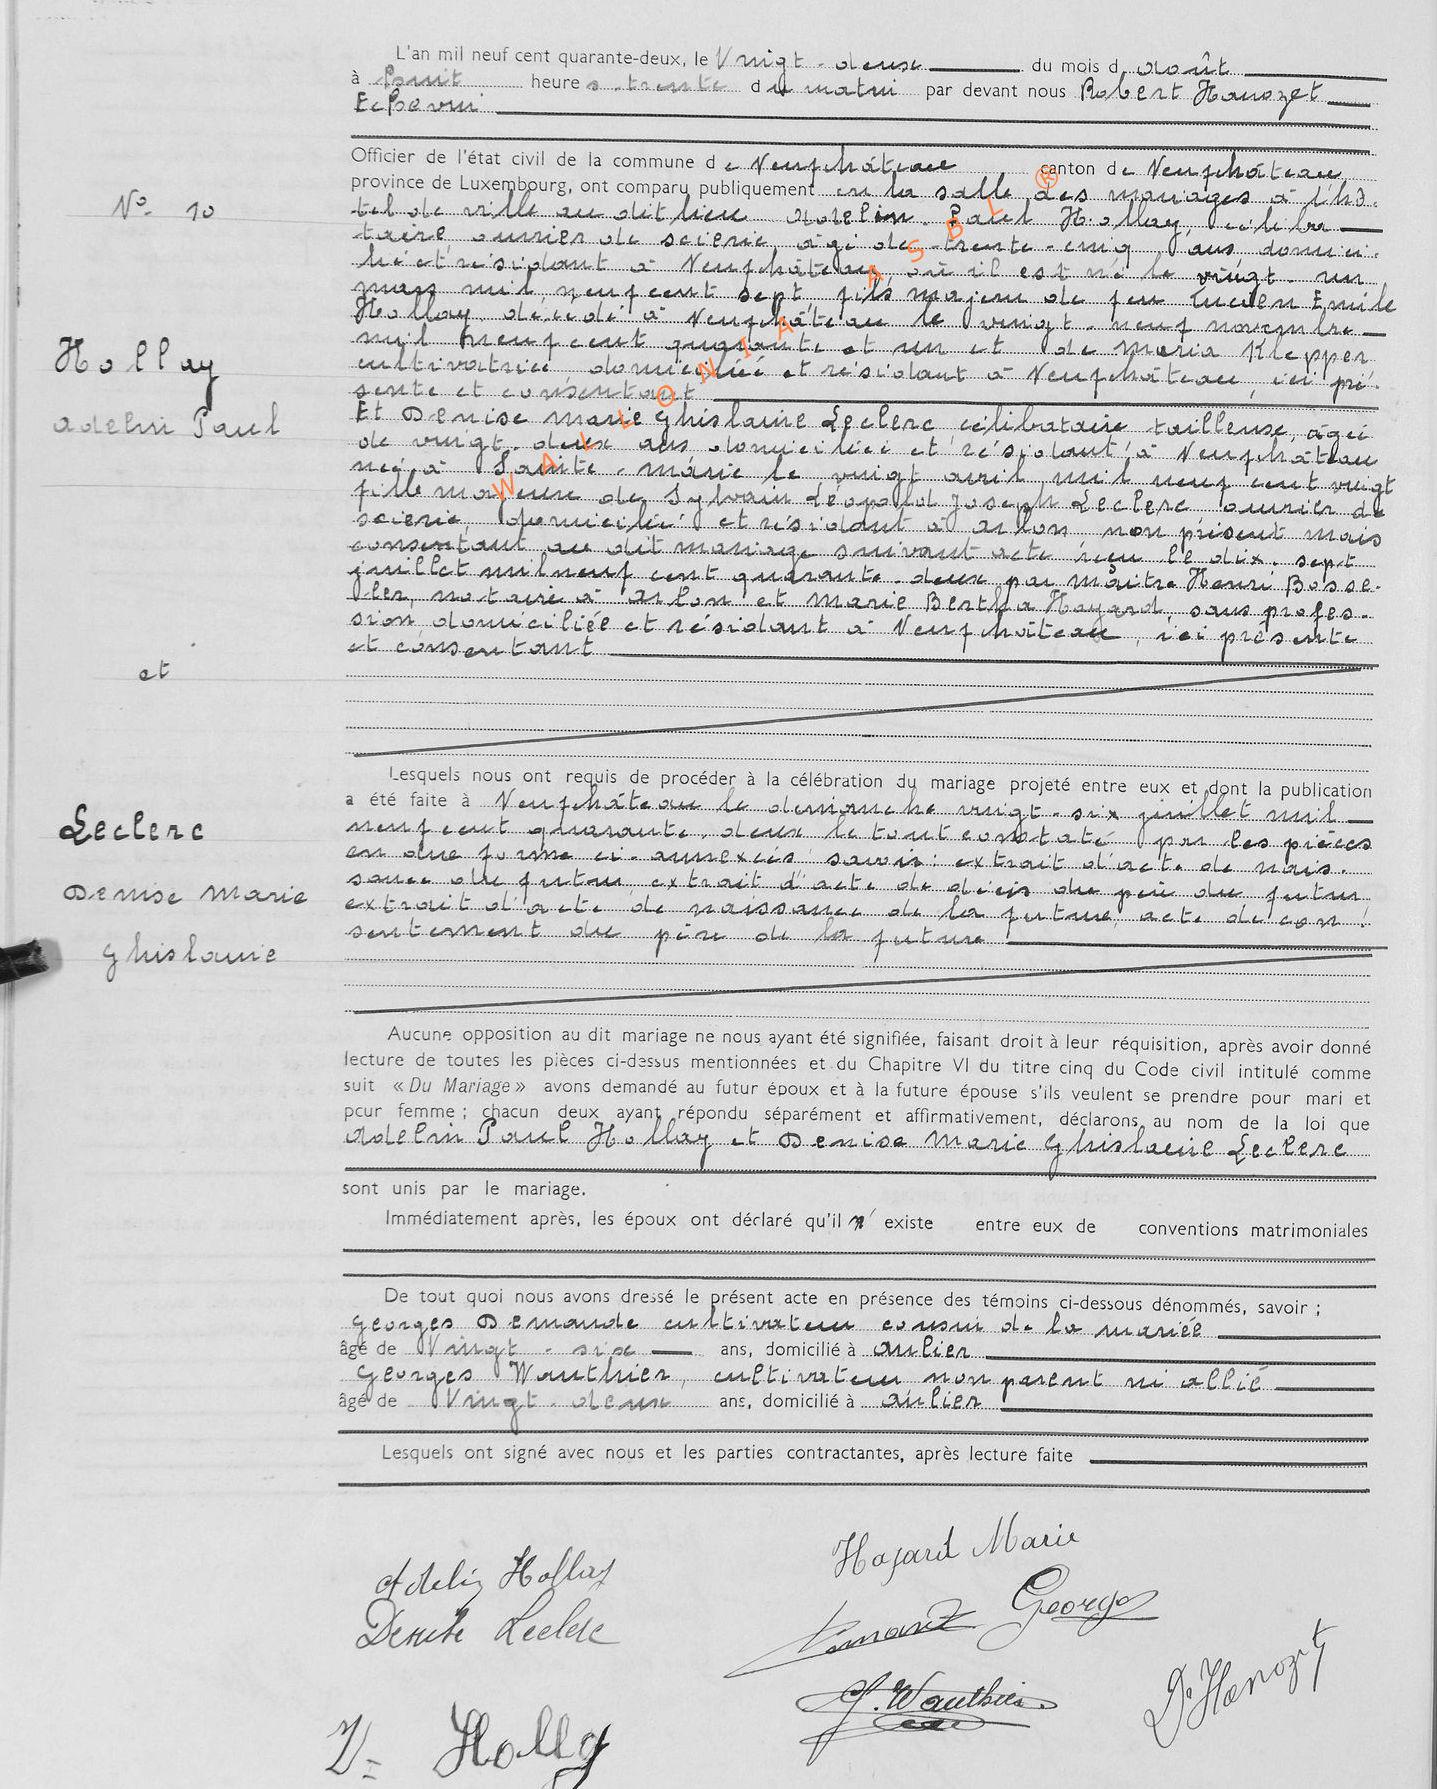 L'an mil neuf cent quarante-deux, le Vingt-deux du mois d août
à huit heures trente du matin par devant nous Robert Hanozet
Echevin
Officier de l'état civil de la commune de Neufchâteau canton de Neufchâteau,
province de Luxembourg, ont comparu publiquement en la salle des mariages à l'hô-
tel de ville au dit lieu Adelin Paul Hollay, céliba
taire, ouvrier de scierie, âgé de trente-cinq ans domici-
lié et résidant à Neufchâteau, où il est né le vingt-un
mars mil neuf cent sept, fils majeur de feu Lucien Emile
Hollay décédé à Neufchâteau le vingt-neuf novembre
mil neuf cent quarante et un et de Maria Klepper
cultivatrice domiciliée et résidant à Neufchâteau, ici pré-
sente et consentant
Et Denise Marie Ghislaine Leclerc célibataire tailleuse, âgée
de vingt-deux ans domiciliée et résidant à Neufchâteau
née à Sainte-Marie le vingt avril mil neuf cent vingt
fille majeure de Sylvain Léopold Joseph Leclerc ouvrier de
scierie, domicilié et résidant à Arlon non présent mais
consentant au dit mariage suivant acte reçu le dix-sept
juillet mil neuf cent quarante-deux par Maître Henri Bosse-
ler, notaire à Arlon et Marie Bertha Hayard, sans profes-
sion domiciliée et résidant à Neufchâteau, ici présente
et consentant
N° 10
Hollay
Adelin Paul
et
Leclerc
Denise Marie
Ghislaine
Lesquels nous ont requis de procéder à la célébration du mariage projeté entre eux et dont la publication
a été faite à Neufchâteau le dimanche vingt-six juillet mil
neuf cent quarante-deux le tout constaté par les pièces
en due forme ci-annexées savoir: extrait d'acte de nais-
sance du futur, extrait d'acte de décès du père du futur
extrait d'acte de naissance de la future, acte de con-
sentement du père de la future
Aucune opposition au dit mariage ne nous ayant été signifiée, faisant droit à leur réquisition, après avoir donné
lecture de toutes les pièces ci-dessus mentionnées et du Chapitre VI du titre cinq du Code civil intitulé comme
suit « Du Mariage » avons demandé au futur époux et à la future épouse s'ils veulent se prendre pour mari et
pour femme ; chacun deux ayant répondu séparément et affirmativement, déclarons au nom de la loi que
Adelin Paul Hollay et Denise Marie Ghislaine Leclerc
sont unis par le mariage.
Immédiatement après, les époux ont déclaré qu'il n'existe entre eux de conventions matrimoniales
De tout quoi nous avons dressé le présent acte en présence des témoins ci-dessous dénommés, savoir ;
Georges Demande cultivateur cousin de la mariée
âgé de Vingt-six ans, domicilié à Anlier
Georges Wauthier, cultivateur non parent ni allié
âgé de Vingt-deux ans, domicilié à Anlier
Lesquels ont signé avec nous et les parties contractantes, après lecture faite
Adelin Hollay
Denise Leclerc
Hayard Marie
Georges
G. Wauthier
Hanozet
V= Holly
WALLONIA ASBL ®